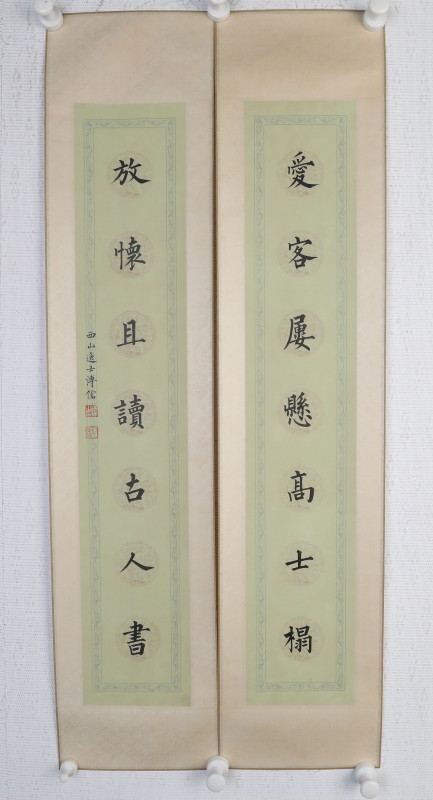 愛客屢懸高士榻
放懷且讀古人書
西山逸士溥儒